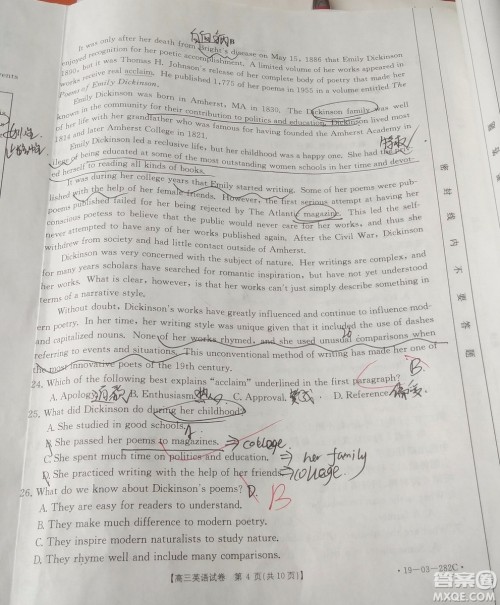 It was only after her death from Bright's disease on May 15, 1886 that Emily Dickinson
enjoyed recognition for her poetic accomplishment. A limited volume of her works appeared in
1890, but it was Thomas H. Johnson's release of her complete body of poetry that made her
works receive real acclaim. He published 1,775 of her poems in 1955 in a volume entitled The
Poems of Emily Dickinson.
Emily Dickinson was born in Amherst, MA in 1830. The Dickinson family was well
known in the community for their contribution to politics and education. Dickinson lived most
of her life with her grandfather who was famous for having founded the Amherst Academy in
1814 and later Amherst College in 1821.
Emily Dickinson led a reclusive life, but her childhood was a happy one. She had the
of being educated at some of the most outstanding women schools in her time and devot-
ed herself to reading all kinds of books.
It was during her college years that Emily started writing. Some of her poems were pub-
lished with the help of her female friends. However, the first serious attempt at having her
poems published failed for her being rejected by The Atlantic magazine. This led the self-
conscious poetess to believe that the public would never care for her works, and thus she
never attempted to have any of her works published again. After the Civil War, Dickinson
withdrew from society and had little contact outside of Amherst.
Dickinson was very concerned with the subject of nature. Her writings are complex, and
for many years scholars have searched for romantic inspiration, but have not yet understood
her works. What is clear, however, is that her works can't just simply describe something in
terms of a narrative style.
Without doubt, Dickinson's works have greatly influenced and continue to influence mod-
ern poetry. In her time, her writing style was unique given that it included the use of dashes
and capitalized nouns. None of her works rhymed, and she used unusual comparisons when
referring to events and situations. This unconventional method of writing has made her one of
the most innovative poets of the 19th century.
24. Which of the following best explains "acclaim" underlined in the first paragraph? B
A. Apology. B. Enthusiasm. C. Approval. D. Reference.
25. What did Dickinson do during her childhood?
A. She studied in good schools. A
B. She passed her poems to magazines. ⇒ college
C. She spent much time on politics and education. ⇒ her family
D. She practiced writing with the help of her friends. ⇒ collage
26. What do we know about Dickinson's poems? D. B
A. They are easy for readers to understand.
B. They make much difference to modern poetry.
C. They inspire modern naturalists to study nature.
D. They rhyme well and include many comparisons.
【高三英语试卷 第 4 页(共 10 页)】
·19-03-282C·
密 封 线 内 不 要 答 题
答案圈